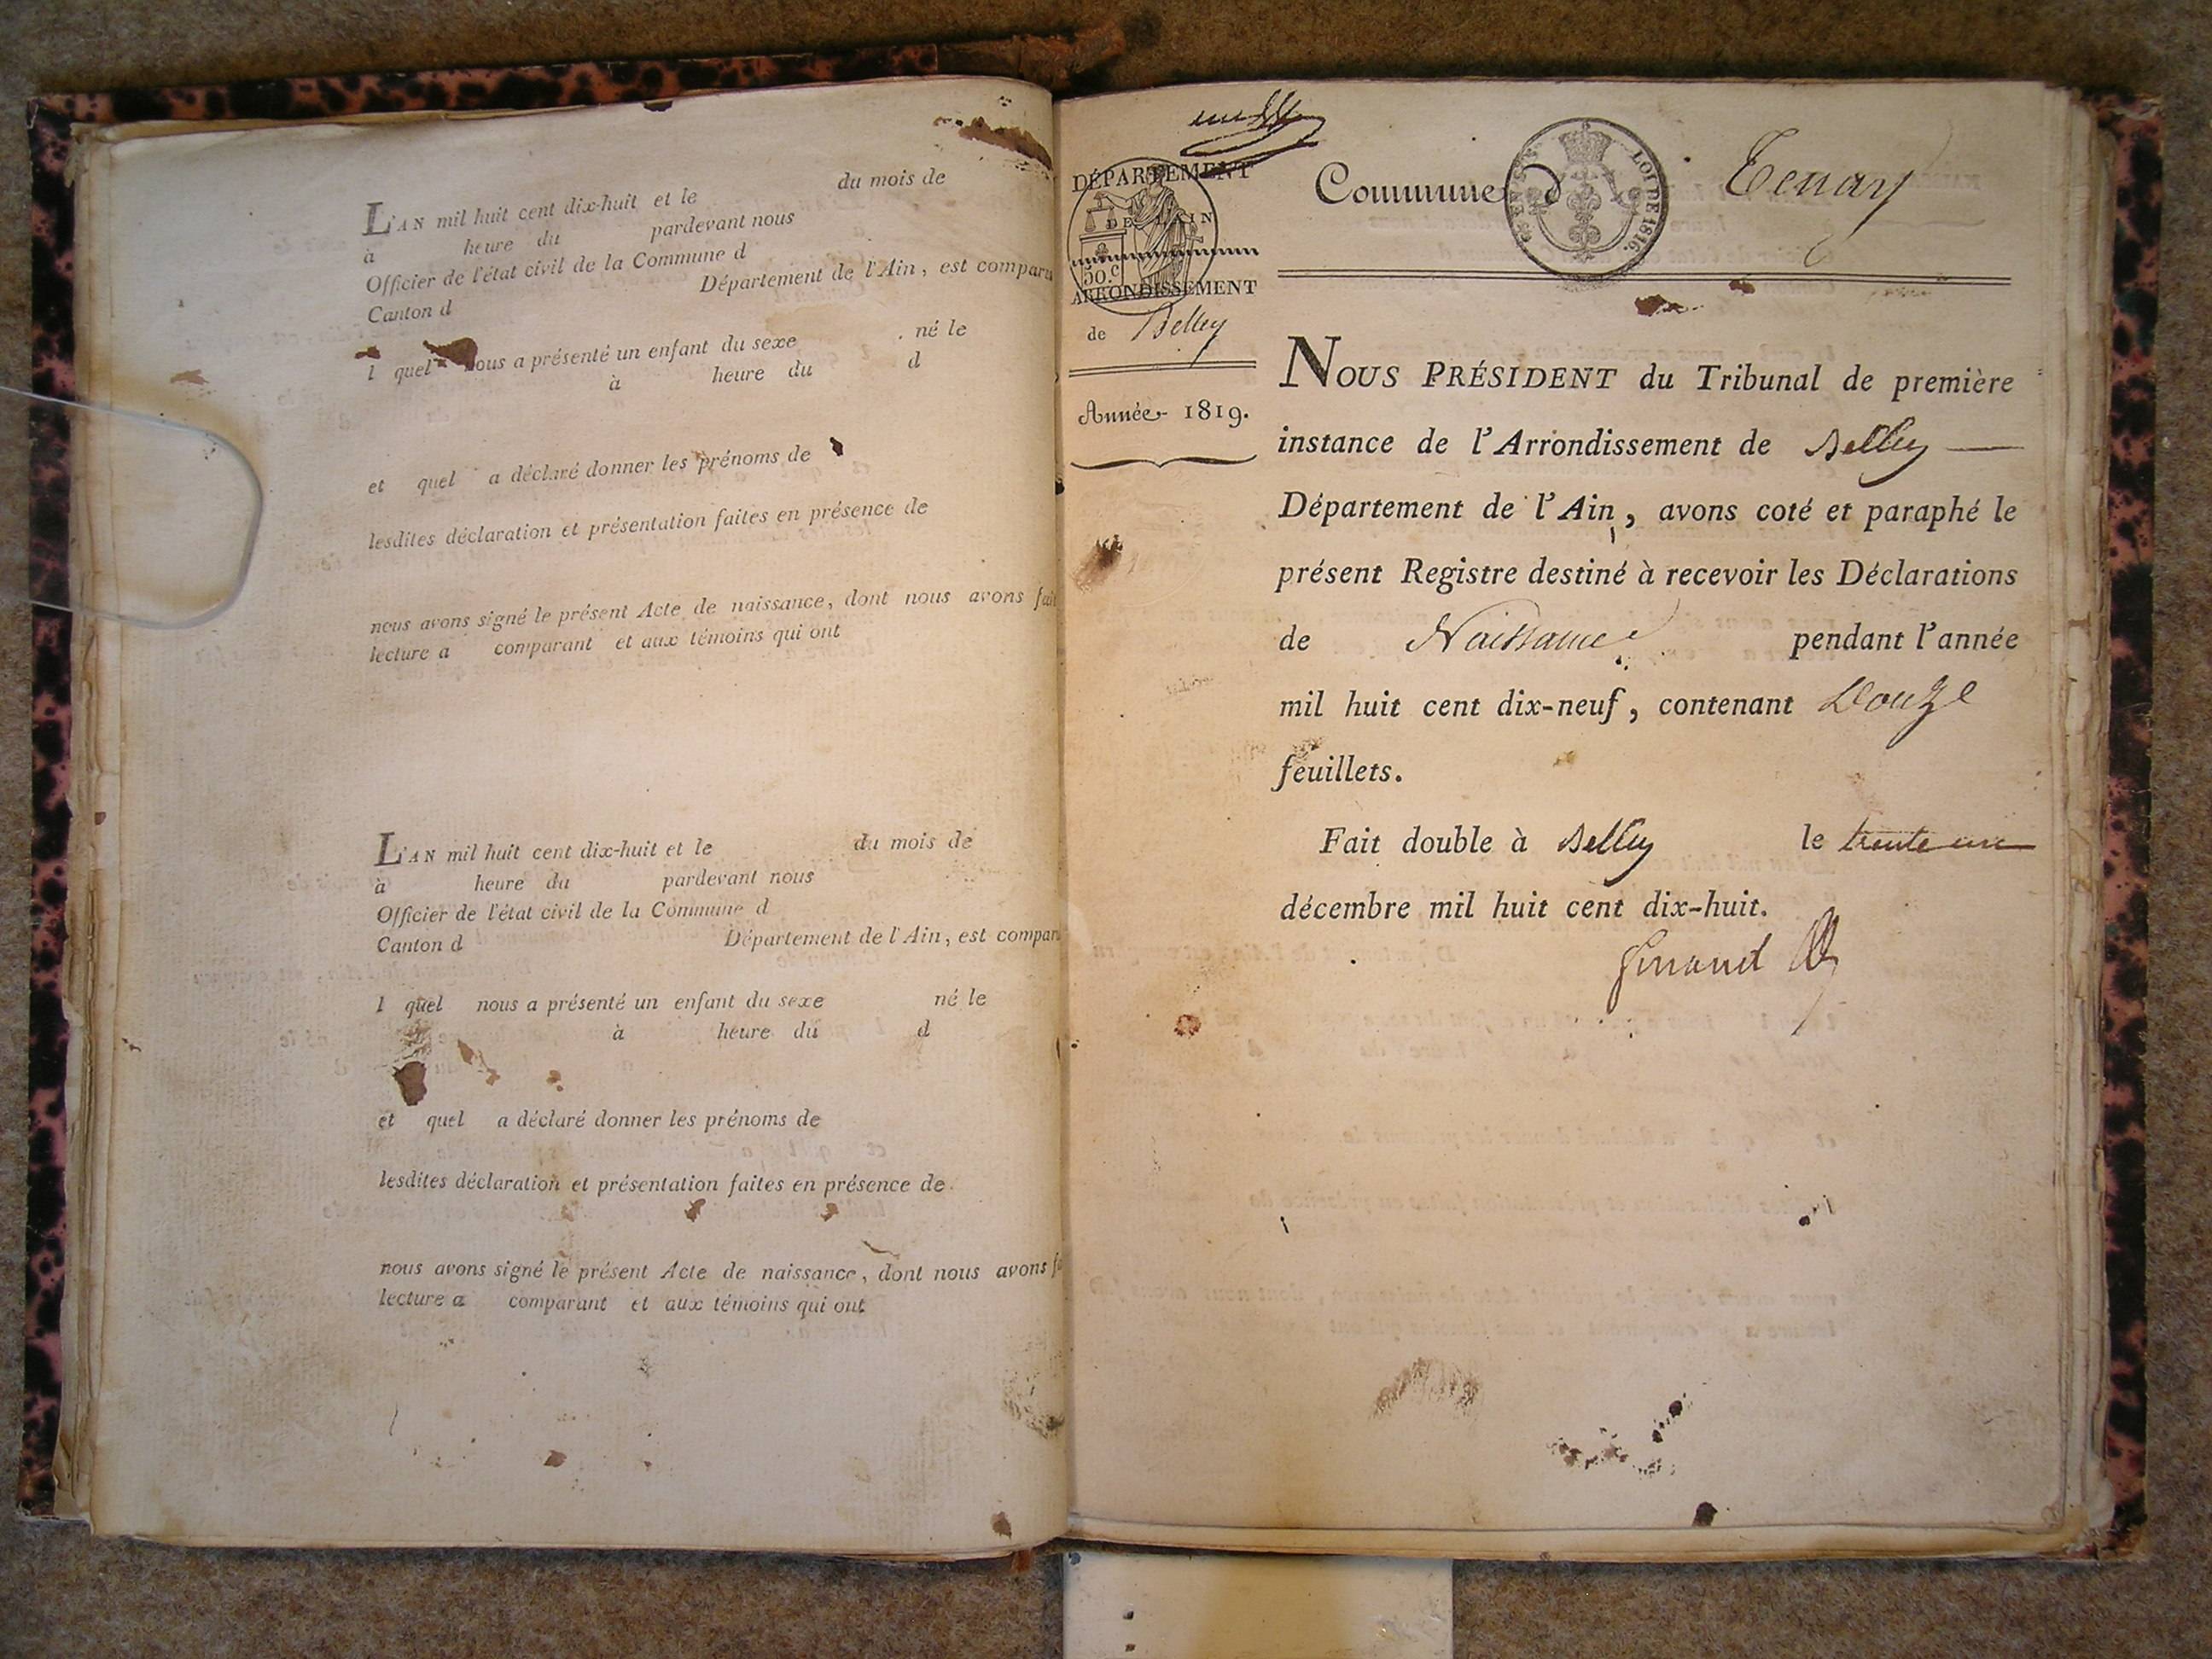 L'AN mil huit cent dix-huit et le du mois de
à heure du pardevant nous
Officier de l'état civil de la Commune d
Canton d Département de l'Ain, est comparu
l quel nous a présenté un enfant du sexe né le
à heure du d
et quel a déclaré donner les prénoms de
lesdites déclaration et présentation faites en présence de
nous avons signé le présent Acte de naissance, dont nous avons fait
lecture a comparant et aux témoins qui ont
L'AN mil huit cent dix-huit et le du mois de
à heure du pardevant nous
Officier de l'état civil de la Commune d
Canton d Département de l'Ain, est compar
l quel nous a présenté un enfant du sexe né le
à heure du d
et quel a déclaré donner les prénoms de
lesdites déclaration et présentation faites en présence de
nous avons signé le présent Acte de naissance, dont nous avons f
lecture a comparant et aux témoins qui ont
DÉPARTEMENT
DE L'AIN
50.c
ARRONDISSEMENT
de Belley
Année 1819.
Commune d Tenay
LOI DE 1816.
NOUS PRÉSIDENT du Tribunal de première
instance de l'Arrondissement de Belley
Département de l'Ain, avons coté et paraphé le
présent Registre destiné à recevoir les Déclarations
de Naissance pendant l'année
mil huit cent dix-neuf, contenant Douze
feuillets.
Fait double à Belley le trente un
décembre mil huit cent dix-huit.